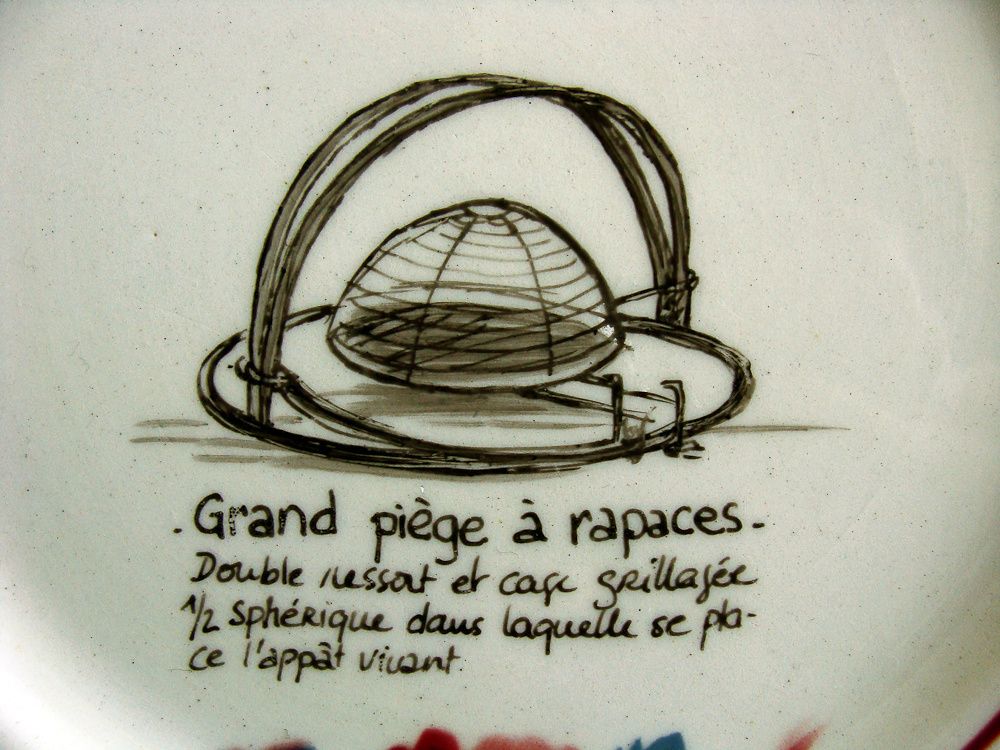 . Grand piège à rapaces.
Double ressort et cage grillagée
1/2 sphérique dans laquelle se pla-
ce l'appât vivant